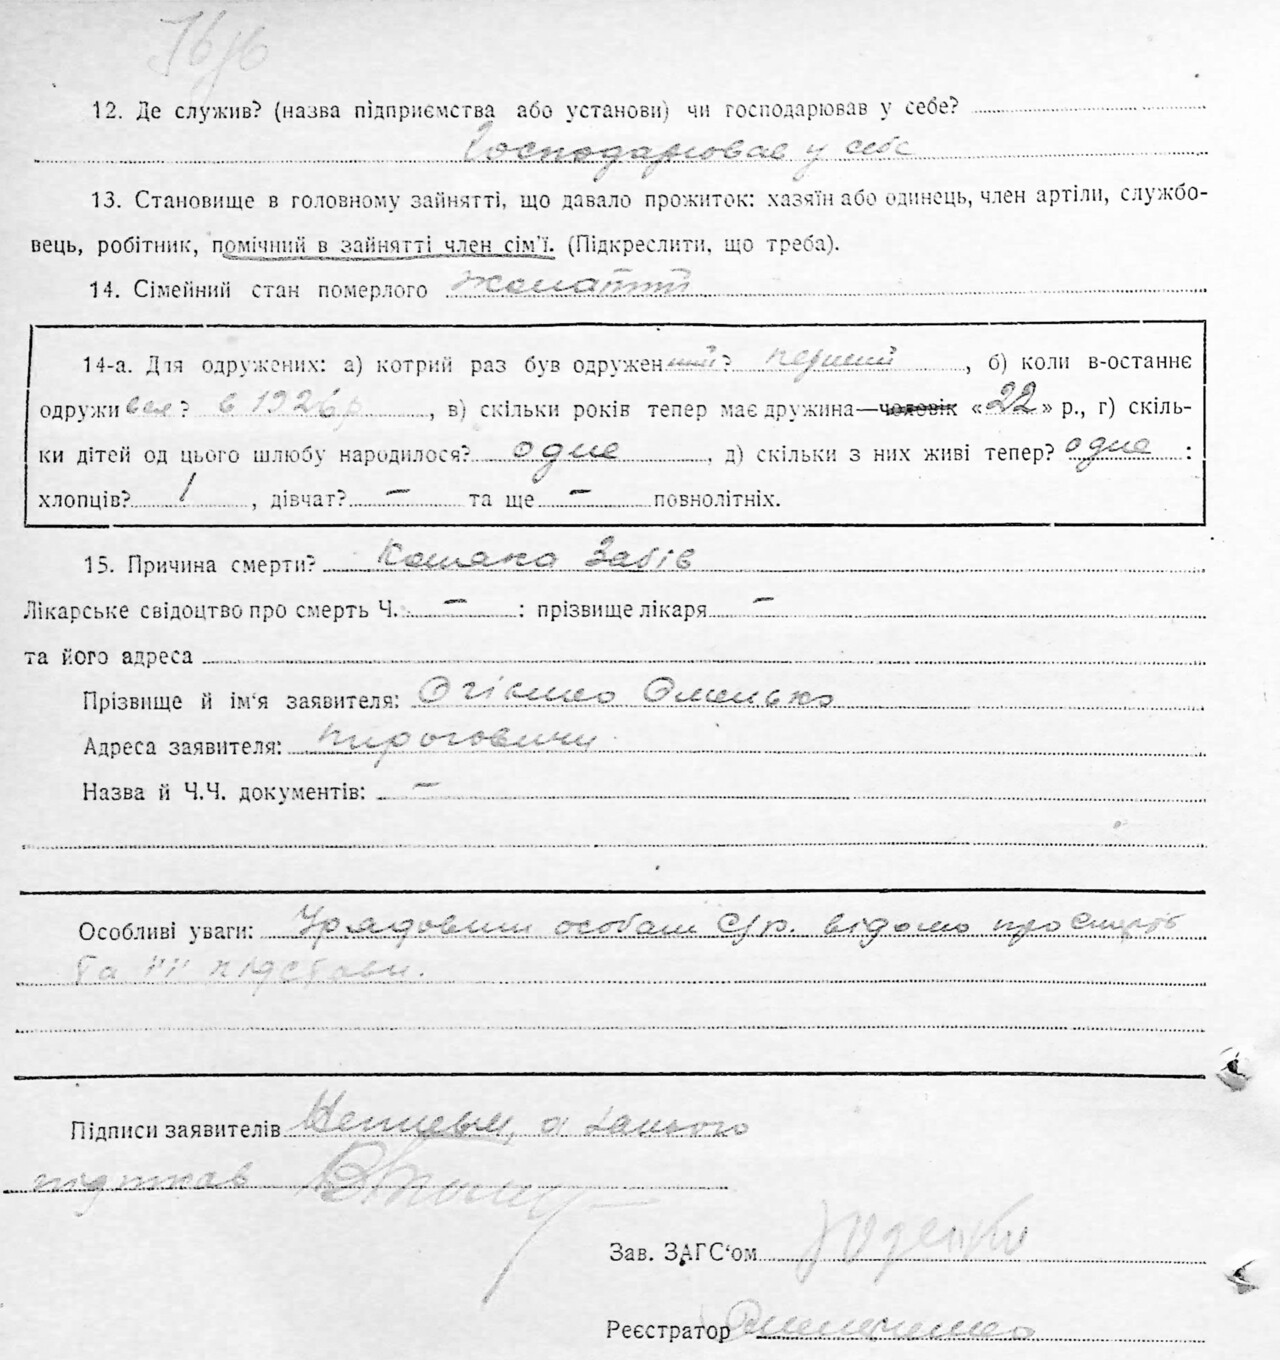 12. Де служив? (назва підприємства або установи) чи господарював у себе?
Господарював у себе
13. Становище в головному зайнятті, що давало прожиток: хазяїн або одинець, член артіли, службо-
вець, робітник, помічний в зайнятті член сім'ї. (Підкреслити, що треба).
14. Сімейний стан померлого жонатий
14-а. Для одружених: а) котрий раз був одружений? перший, б) коли в-останнє
одружився? в 1926 р, в) скільки років тепер має дружина—чоловік «22» р., г) скіль-
ки дітей од цього шлюбу народилося? одне, д) скільки з них живі тепер? одне :
хлопців? 1, дівчат? – та ще – повнолітніх.
15. Причина смерти? Забів
Лікарське свідоцтво про смерть Ч. – : прізвище лікаря –
та його адреса
Прізвище й ім'я заявителя: Омелько
Адреса заявителя: Пироговичи
Назва й Ч.Ч. документів: –
Особливі уваги: Урядовим особам С/р. відомо про смерть
та її підстави.
Підписи заявителів Неписьм, а за нього
підписав
Зав. ЗАГС'ом
Реєстратор